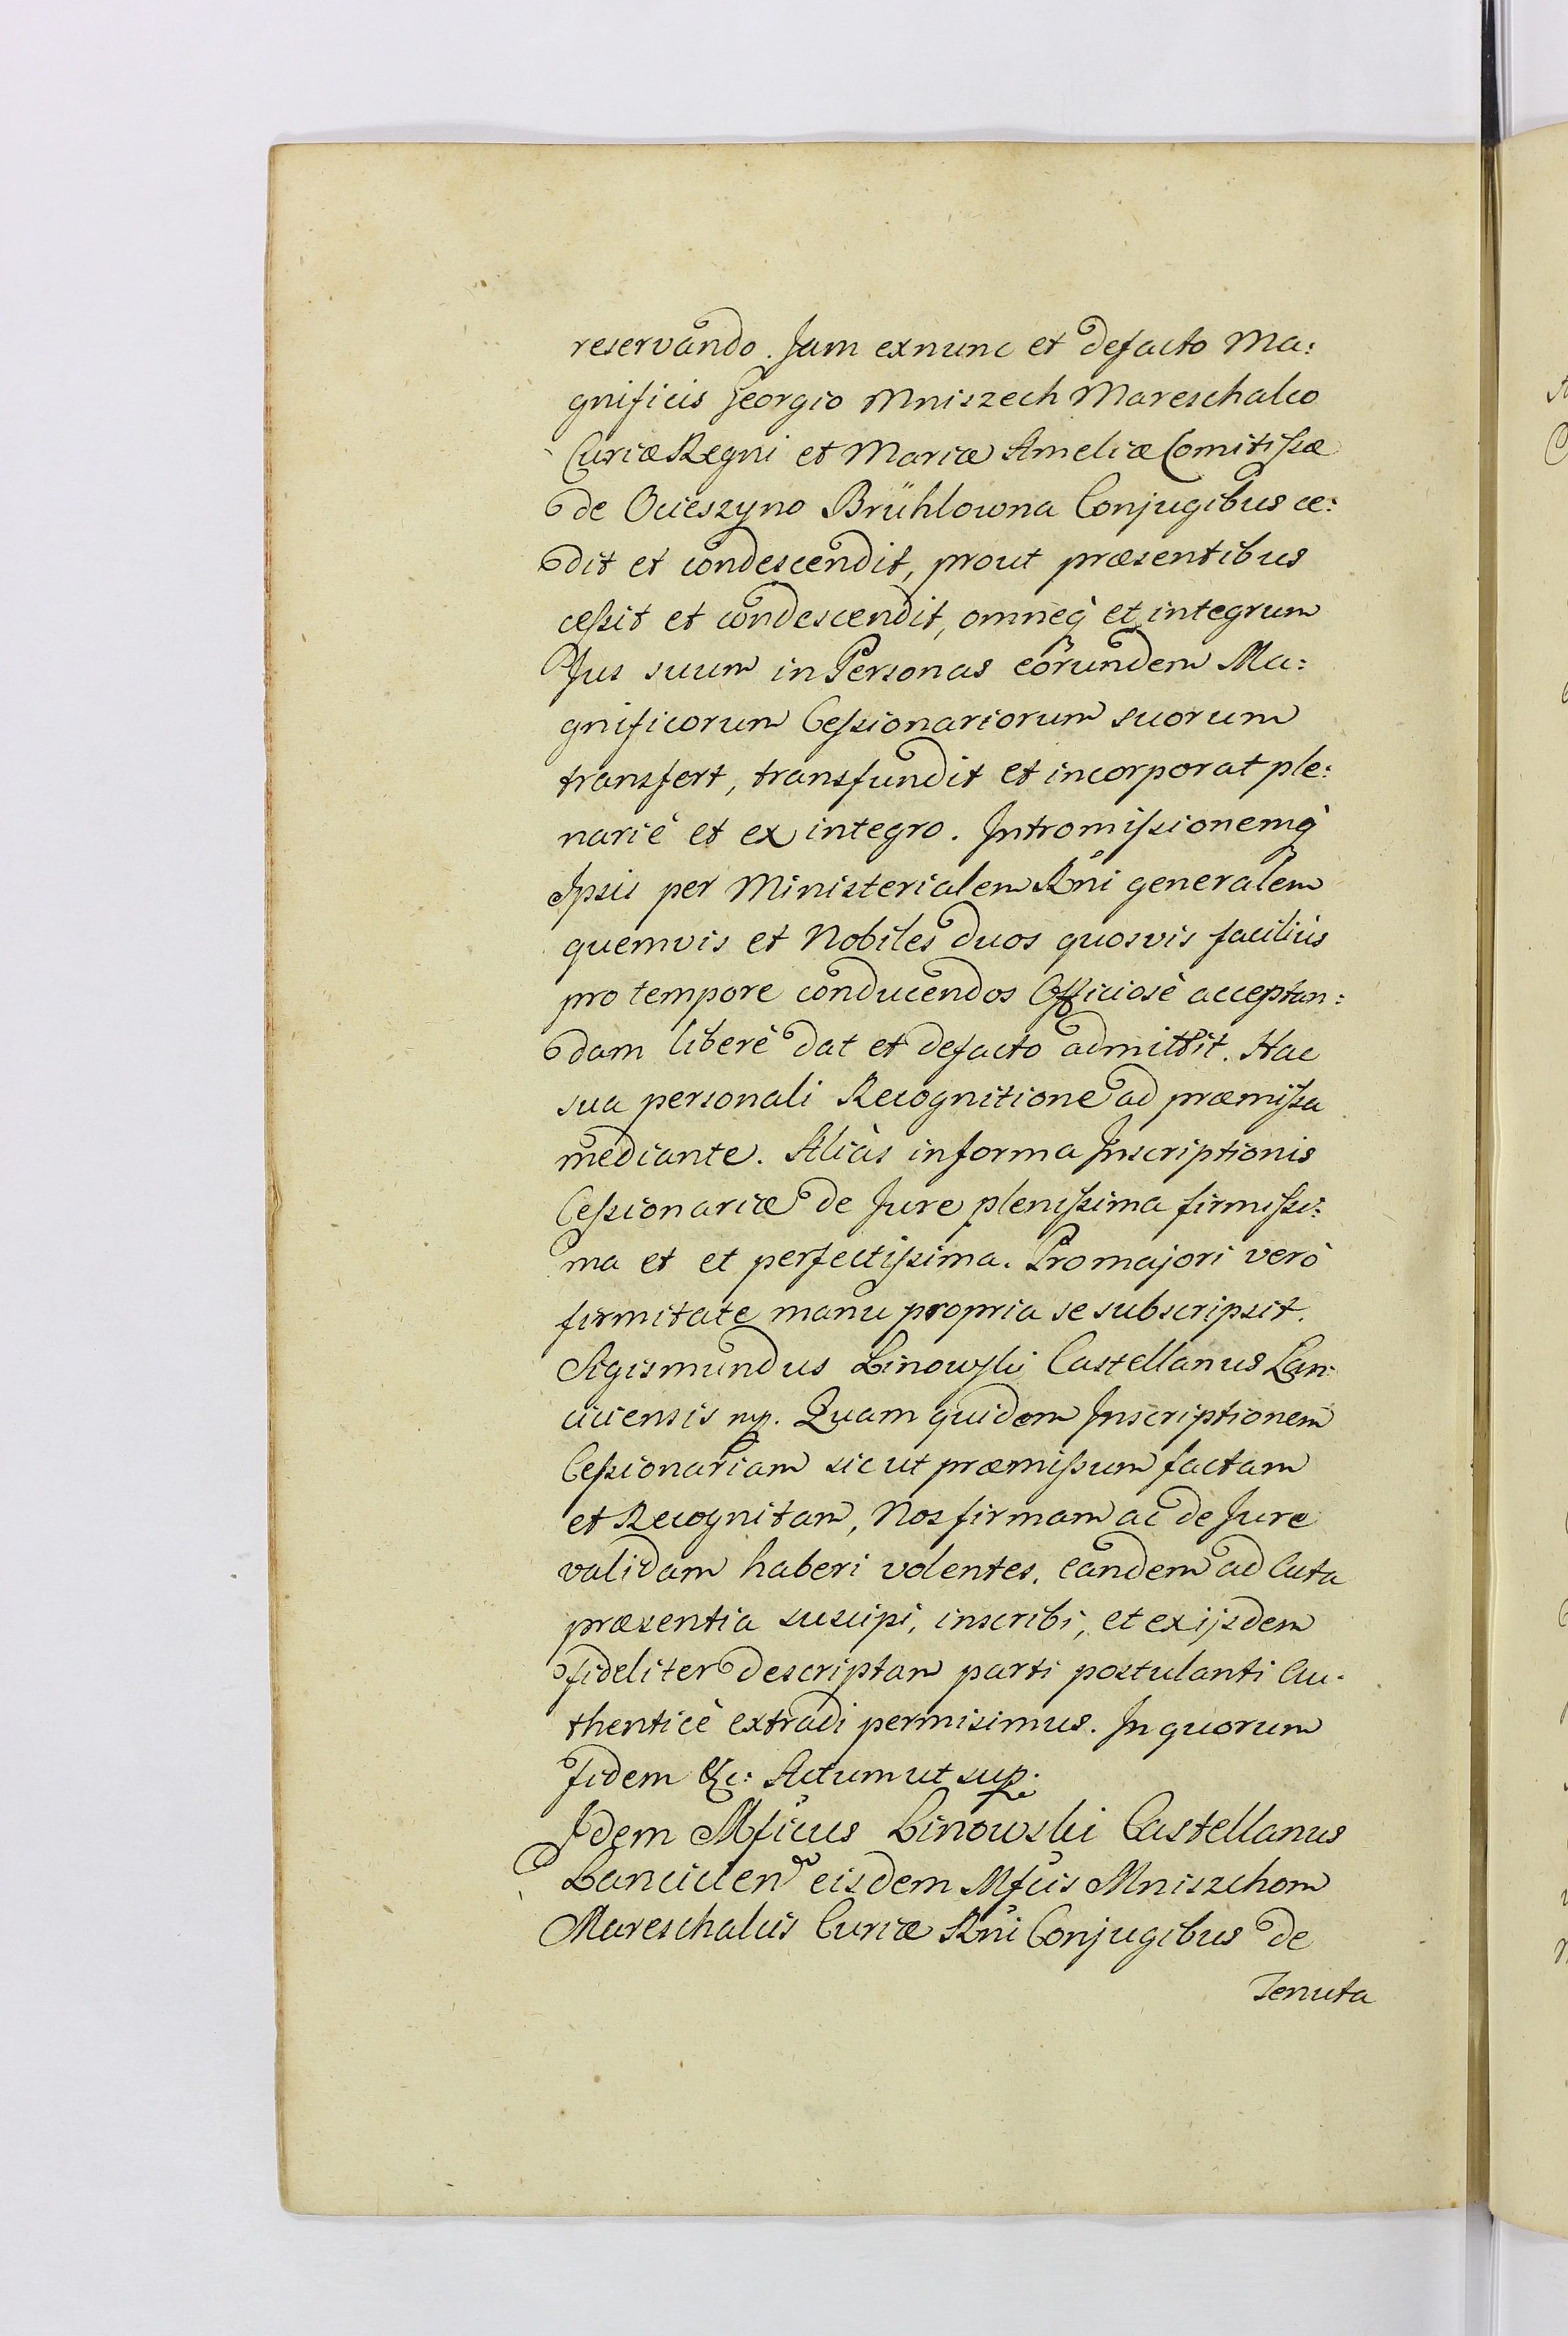 reservando. Jam exnunc et defacto Ma:
gnificis Georgio Mniszech Mareschalco
Curiæ Regni et Mariæ Ameliæ Comitissæ
de Ocieszyno Brühlowna Conjugibus ce:
dit et condescendit, prout præsentibus
cessit et condescendit, omneq̀ et integrum
Jus suum in Personas eôrundem Ma:
gnificorum Cessionariorum suorum
transfert, transfundit et incorporat ple:
nariè et ex integro. Intromissionemq̀
Ipsis per Ministerialem Rni generalem
quemvis et Nobiles duos quosvis faciliùs
pro tempore conducendos Officiosè acceptan:
dam liberè dat et defacto admittit. Hac
sua personali Recognitione ad præmissa
mediante. Aliàs in forma Inscriptionis
Cessionariæ de Jure plenissima firmissi:
ma et et perfectissima. Pro majori verò
firmitate manu propria se subscripsit.
Sigismundus Linowski Castellanus Lan:
ciciensis mp. Quam quidem Inscriptionem
Cessionariam sic ut præmissum factam
et Recognitam, Nos firmam ac de Jure
validam haberi volentes, eandem ad Acta
præsentia suscipi, inscribi, et ex ijsdem
fideliter descriptam parti postulanti Au:
thenticè extradi permisimus. In quorum
fidem &c: Actum ut sup:
Idem Mficus Linowski Castellanus
Lancicien eisdem Mfcis Mniszchom
Mareschalcis Curiæ Rni Conjugibus de
Tenuta